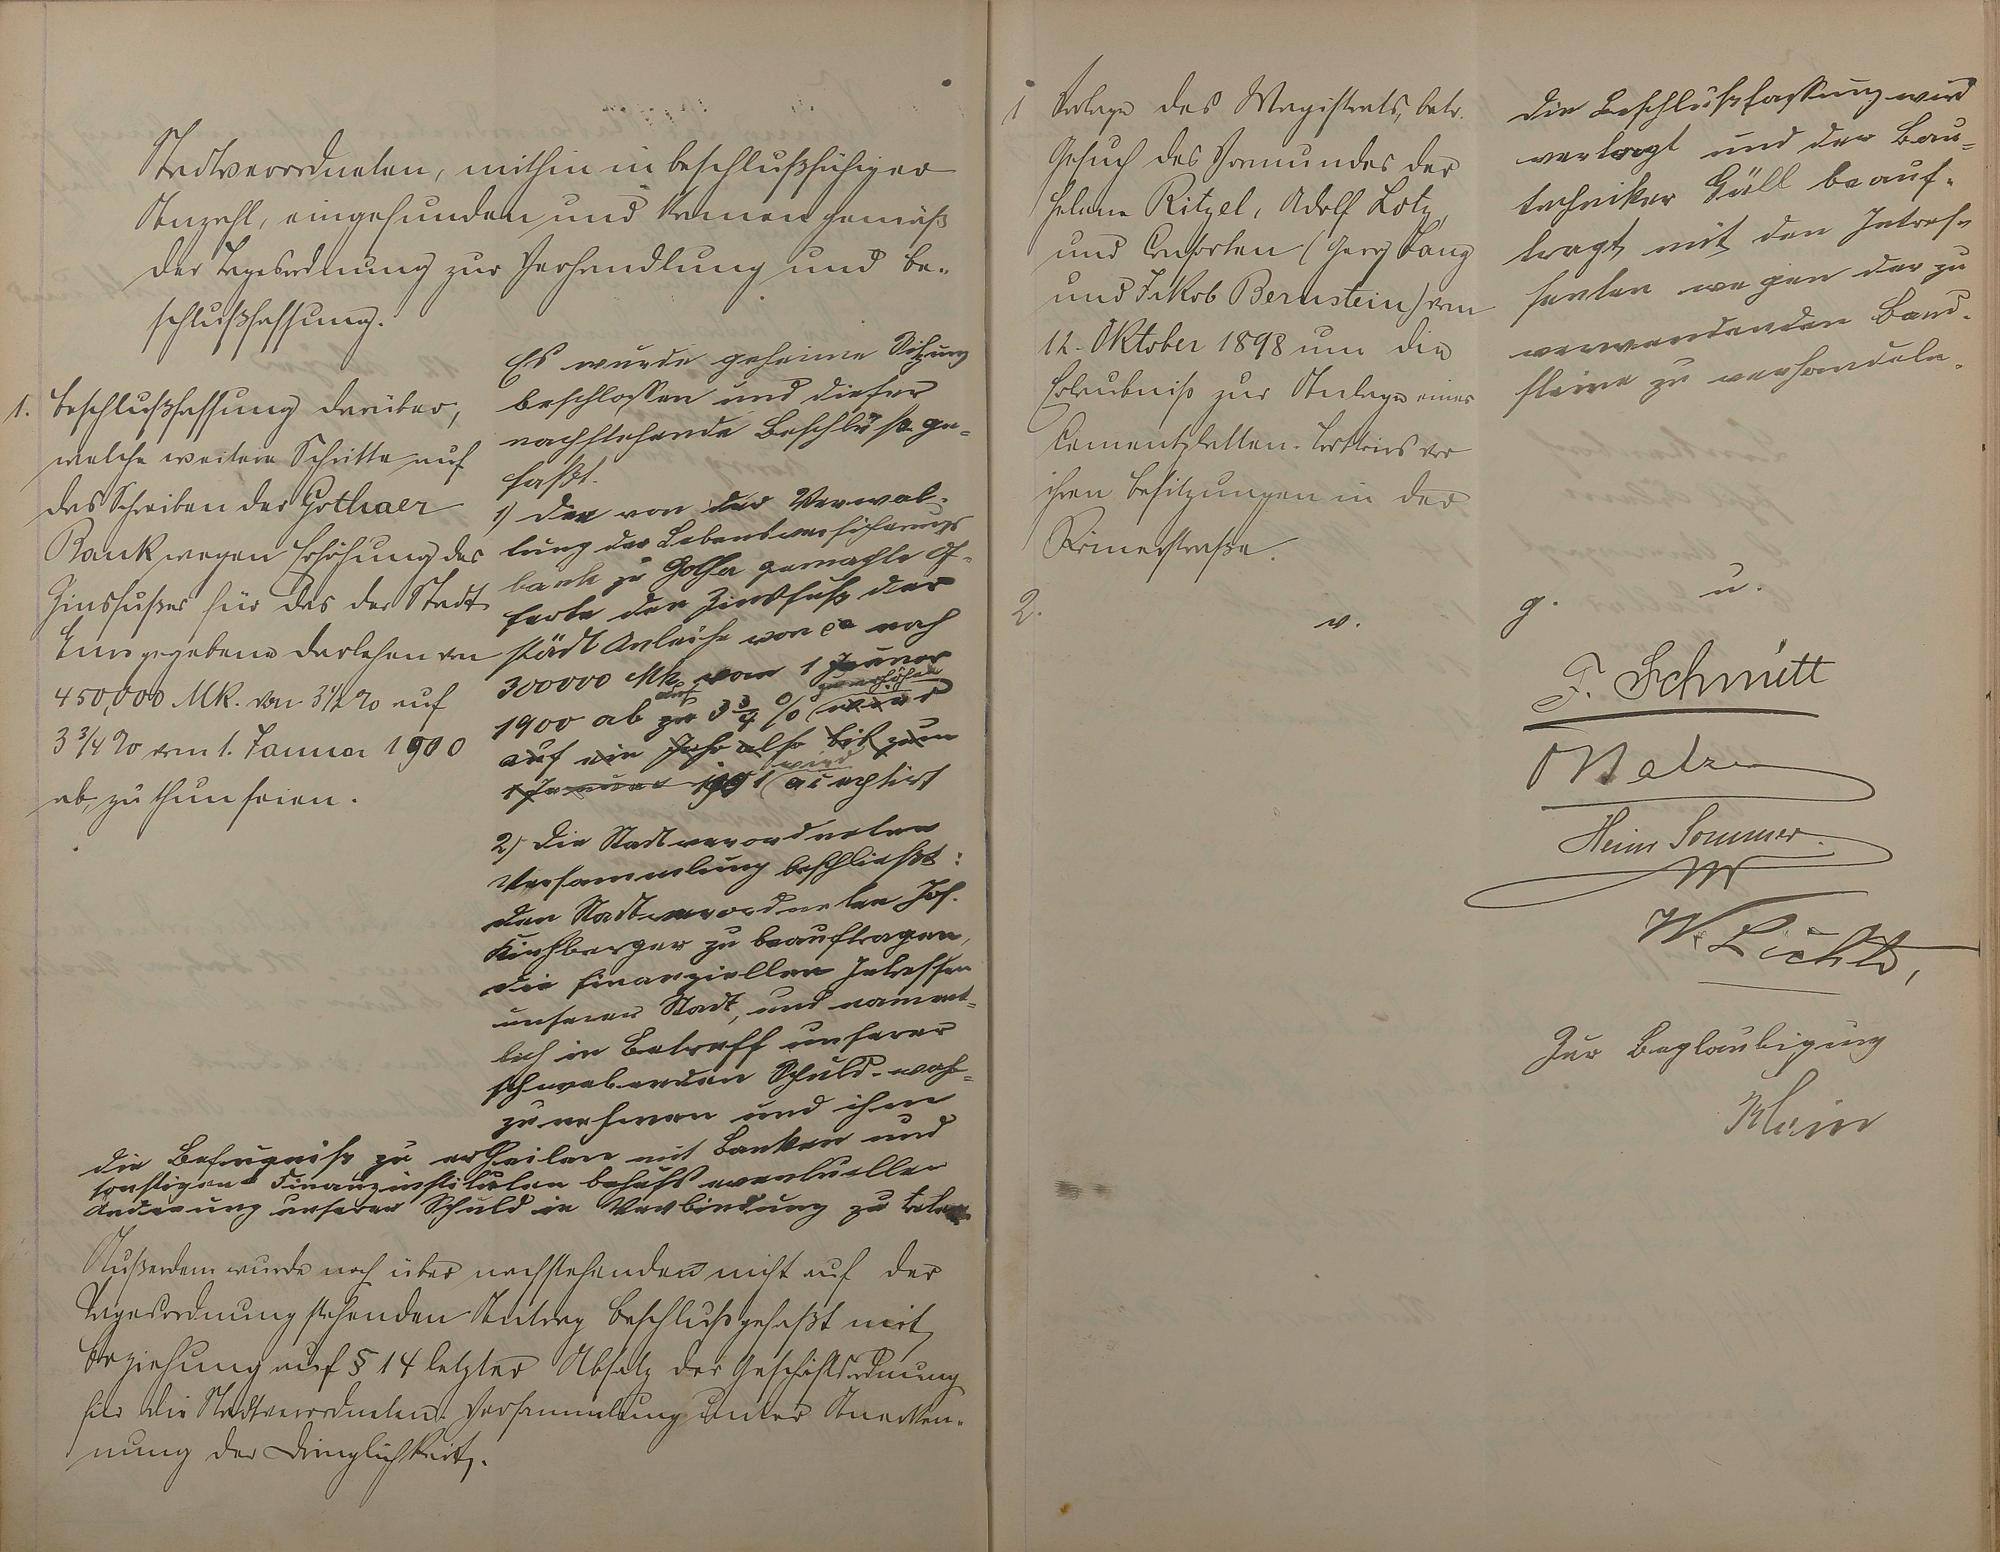 Stadtverordneten, mithin in beschlußfähiger
Anzahl, eingefunden und kamen gemäß
der Tagesordnung zur Verhandlung und Be-
schlußfassung.
1. Beschlußfassung darüber,
welche weitere Schritte auf
das Schreiben der Gothaer
Bank wegen Erhöhung des
Zinsfußes für das der Stadt
hergegebene Darlehen von
450,000 Mk. von 3 1/2 % auf
3 3/4 % vom 1. Januar 1900
ab, zu thun seien.
Es wurde geheime Sitzung
beschlossen und dieser
nachstehende Beschlüße ge-
faßt.
1) Die von der Verwal-
tung der Lebensversicherungs
bank zu Gotha gemachte Of-
ferte den Zinsfuß der
städt Anleihe von ca noch
300000 Mk vom 1 Januar
1900 ab zu auf 3 3/4 % zu erhöhen
auf ein Jahr also bis zum
1 Januar 1901 wird acceptirt
2) Die Stadtverordneten
Versammlung beschließt:
den Stadtverordneten Jos.
Kirchberger zu beauftragen,
die finanziellen Intressen
unserer Stadt, und nament-
lich in Betreff unserer
schwebenden Schuld wahr-
zunehmen und ihm
die Befugniß zu ertheilen mit Banken und
sonstigen Finanzinstituten behufs eventueller
Änderung unserer Schuld in Verbindung zu treten
Außerdem wurde noch über nachstehenden nicht auf der
Tagesordnung stehenden Antrag Beschluß gefaßt mit
Beziehung auf § 14 letzter Absatz der Geschäftsordnung
für die Stadtverordneten-Versammlung unter Anerken-
nung der Dringlichkeit.
1 Vorlage des Magistrats, betr.
Gesuch des Vormundes der
Helene Ritzel, Adolf Lotz,
und Consorten (Georg Lang
und Jakob Bernstein) vom
12. Oktober 1898 um die
Erlaubniß zur Anlage eines
Cementplatten-Trottoirs vor
ihren Besitzungen in der
Römerstraße.
Die Beschlußfassung wird
vertagt und der Bau-
techniker Güll beauf-
tragt mit den Intres-
senten wegen der zu
verwendenden Band-
steine zu verhandeln.
2. v. g. u.
F. Schmitt
Heinr Sommer
W. Licht
Zur Beglaubigung
Klein